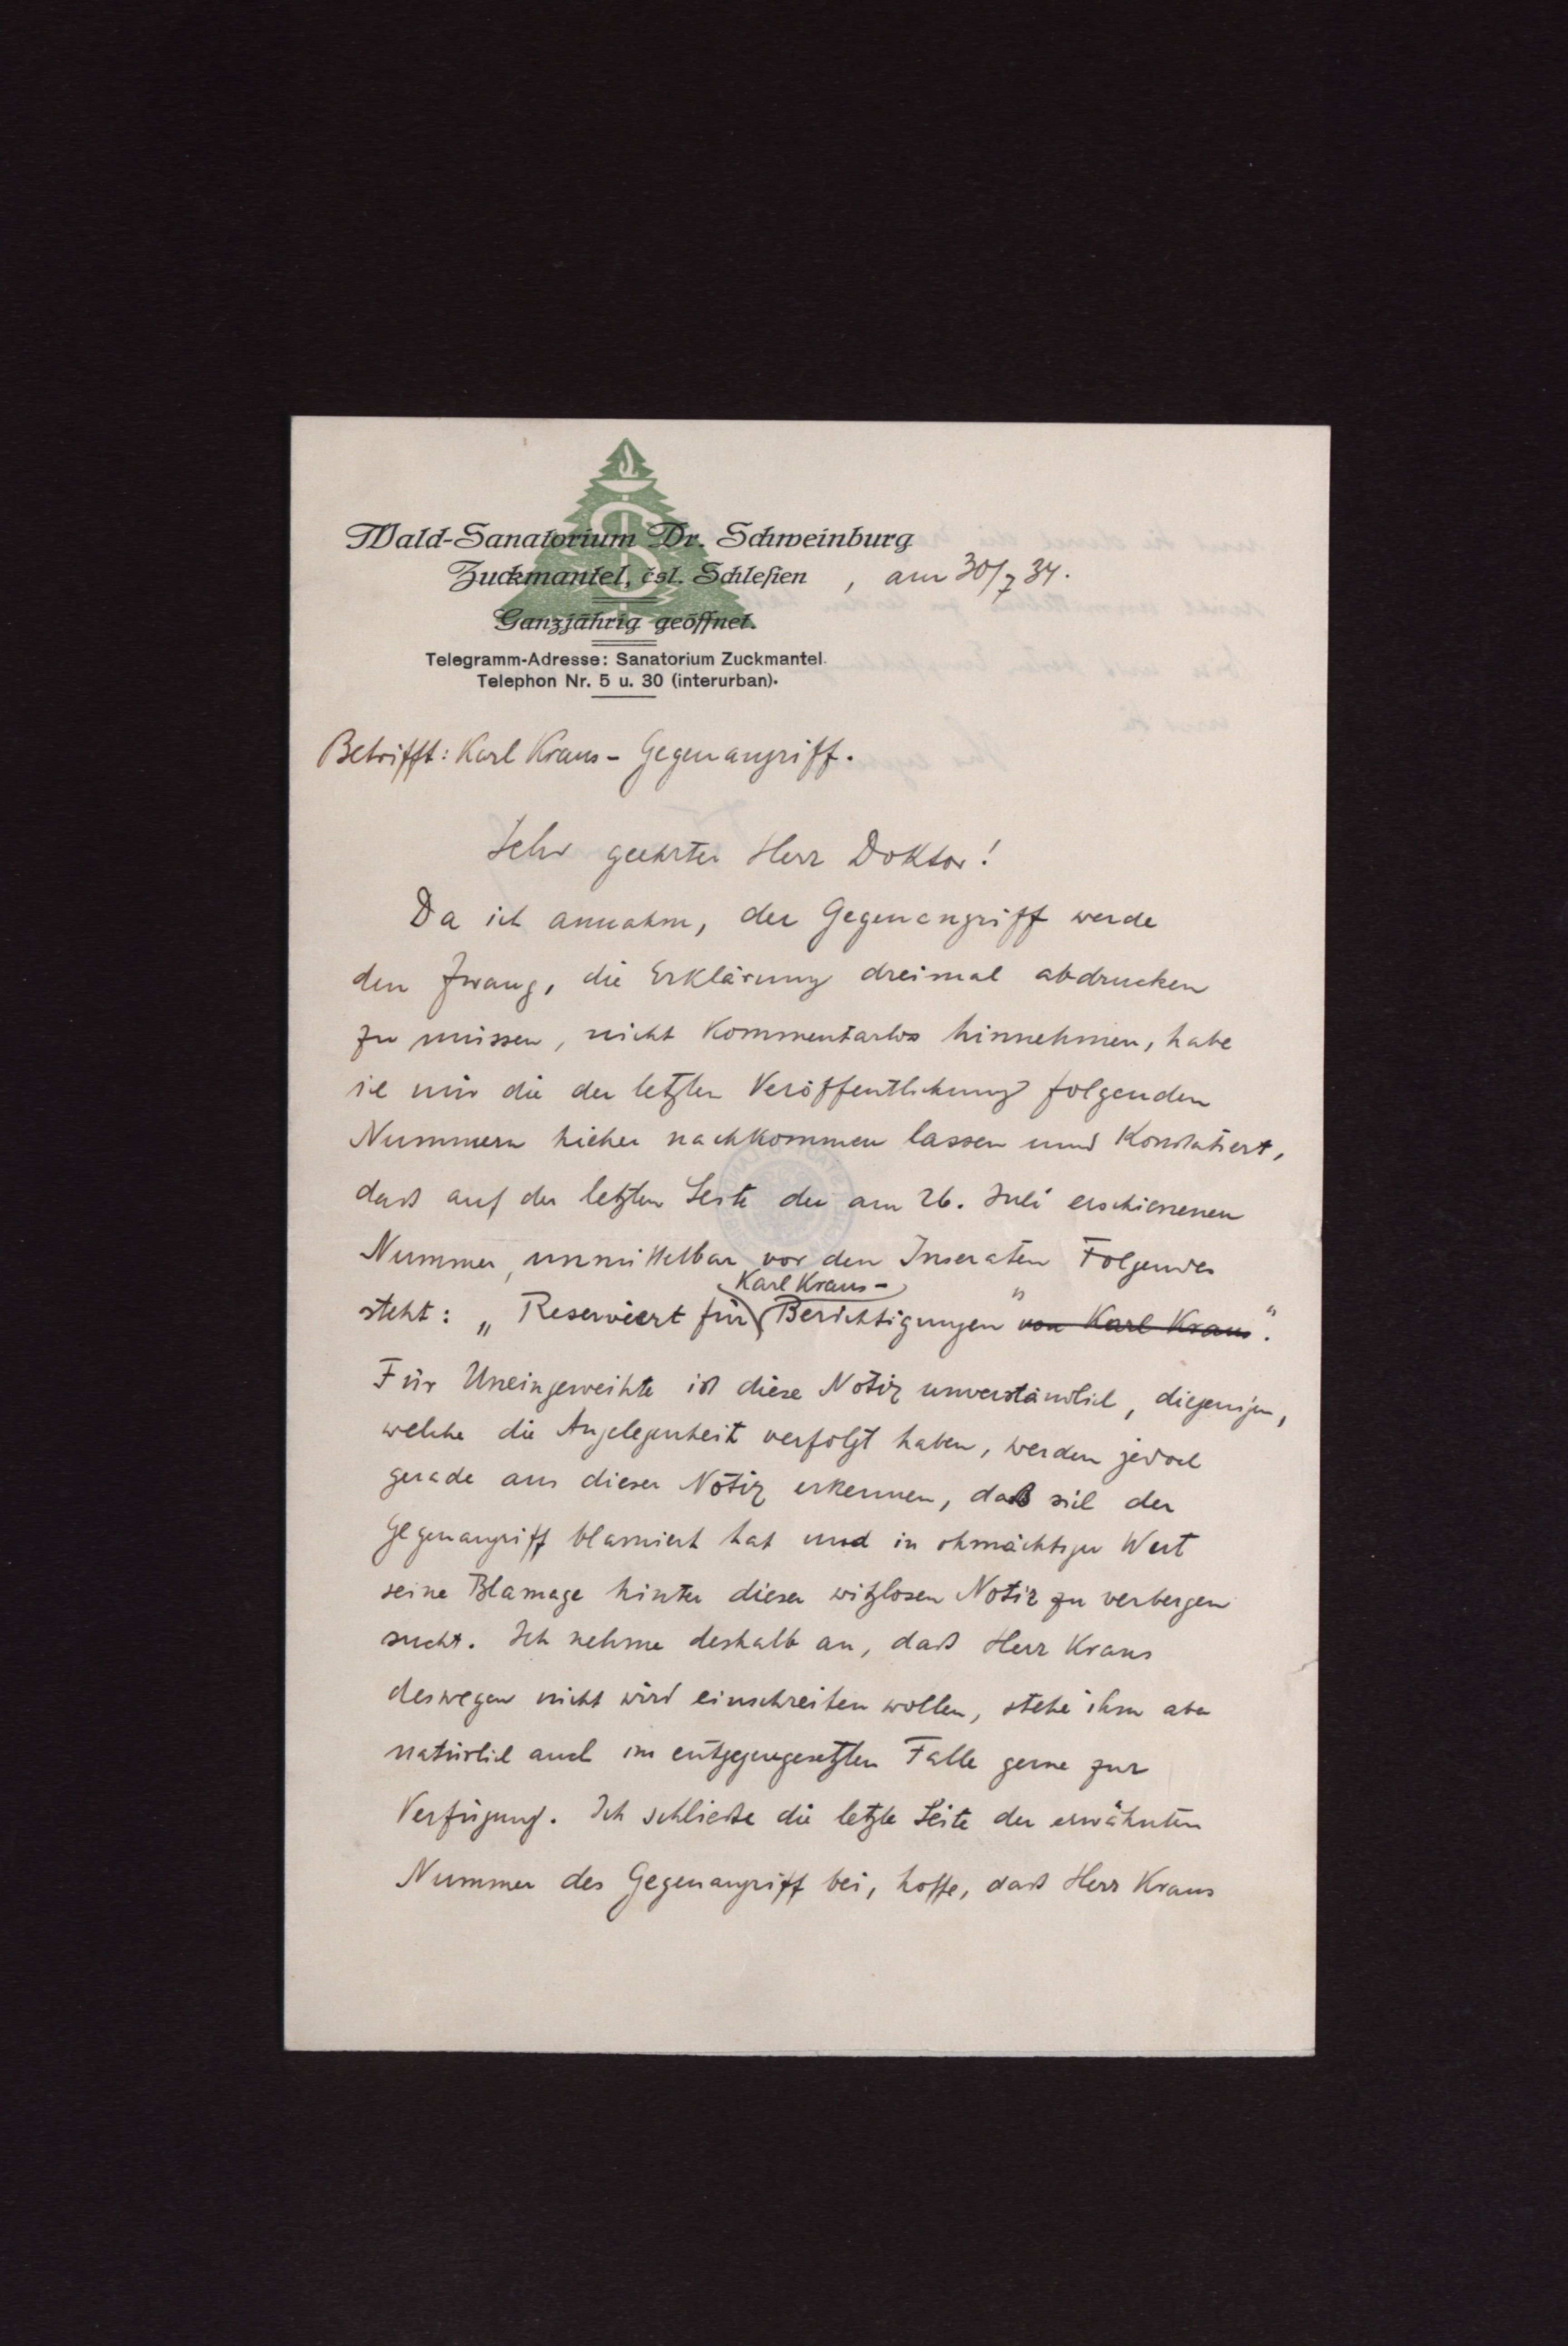 Wald-Sanatorium Dr. Schweinburg
Zuckmantel, čsl. Schlesien , am 30/7 34.
Ganzjährig geöffnet.
Telegramm-Adresse: Sanatorium Zuckmantel.
Telephon Nr. 5 u. 30 (interurban).
Betrifft: Karl Kraus - Gegenangriff.
Sehr geehrter Herr Doktor!
Da ich annahm, der Gegenangriff werde
den Zwang, die Erklärung dreimal abdrucken
zu müssen, nicht kommentarlos hinnehmen, habe
ich mir die der letzten Veröffentlichung folgenden
Nummern hieher nachkommen lassen und konstatiert,
daß auf der letzten Seite der am 26. Juli erschienenen
Nummer, unmittelbar vor den Inseraten Folgendes
Karl Kraus-
steht: „Reserviert für Berichtigungen" von Karl Kraus".
Für Uneingeweihte ist diese Notiz unverständlich, diejenigen,
welche die Angelegenheit verfolgt haben, werden jedoch
gerade aus dieser Notiz erkennen, daß sich der
Gegenangriff blamiert hat und in ohmächtiger Wut
seine Blamage hinter dieser witzlosen Notiz zu verbergen
sucht. Ich nehme deshalb an, daß Herr Kraus
deswegen nicht wird einschreiten wollen, stehe ihm aber
natürlich auch im entgegengesetzten Falle gerne zur
Verfügung. Ich schließe die letzte Seite der erwähnten
Nummer des Gegenangriff bei, hoffe, daß Herr Kraus